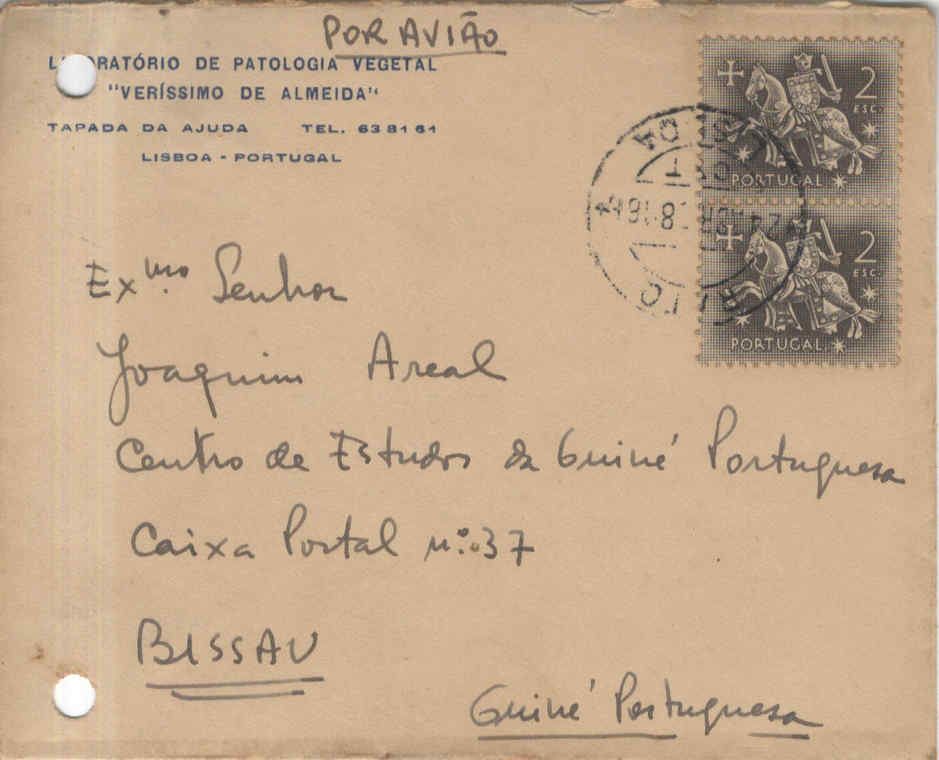 POR AVIÃO
L RATÓRIO DE PATOLOGIA VEGETAL
"VERÍSSIMO DE ALMEIDA"
TAPADA DA AJUDA TEL. 63 81 61
LISBOA - PORTUGAL
2 ESC.
PORTUGAL
2 ESC.
PORTUGAL
Exmo. Senhor
Joaquim Areal
Centro de Estudos da Guiné Portuguesa
Caixa Postal nº. 37
BISSAU
Guiné Portuguesa